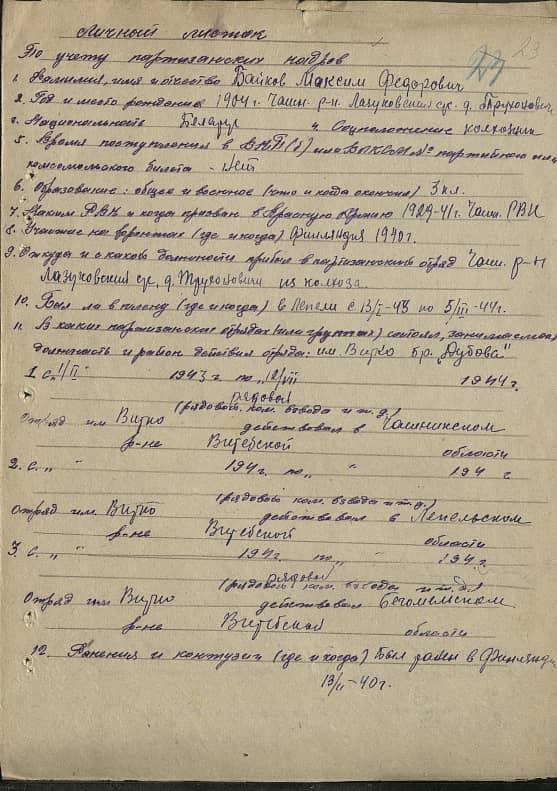 Личный листок
23 23
По учету партизанских кадров
1. Фамилия, имя и отчество Байков Максим Федорович
2. Год и место рождения 1904 г. Чашн. р-н Лазуковский с/с. д. Трухоновичи
3. Национальность Беларус 4. Соцположение колхозник
5. Время поступления в ВКП(б) или ВЛКСМ № партийного или
комсомольского билета - Нет
6. Образование: общее и военное (что и когда окончил) 3 кл.
7. Каким РВК и когда призван в Красную Армию 1929-41 г. Чашн. РВК
8. Участие на фронтах (где и когда) Финляндия 1940 г.
9. Откуда и с какой должности прибыл в партизанский отряд Чашн. р-н
Лазуковский с/с, д. Трухоновичи из колхоза.
10. Был ли в плену (где и когда) в Лепели с 13/I-43 по 5/III-44 г.
11. В каких партизанских отрядах (или группах) состоял, занимаемая
должность и район действия отряда: им. Витко бр. „Дубова"
1 с „1/II" 1943 г. по „12/VII 1944 г.
рядовой
(рядовой, ком. взвода и т.д.)
Отряд им Витко действовал в Чашникском
р-не Витебской области
2. с „ " 194 г. по „ " 194 г
(рядовой ком. взвода и т.д.)
Отряд им. Витко действовал в Лепельском
р-не Витебской области
3. с „ " 194 г. по „ " 194 г.
рядовой
(рядовой ком. взвода и т.д.)
Отряд им Витко действовал Бегомльском
р-не Витебской области
12. Ранения и контузии (где и когда) был ранен в Финлянди
13/II-40 г.